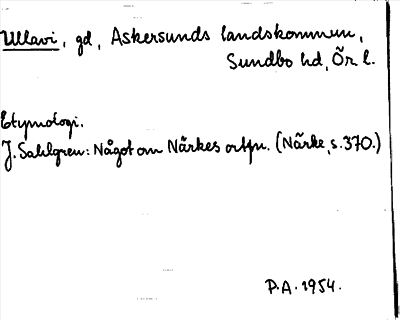 Ullavi, gd, Askersunds landskommun,
Sundbo hd, Ör. l.
Etymologi.
J. Sahlgren: Något om Närkes ortn. (Närke, s. 370.)
P.A. 1954.